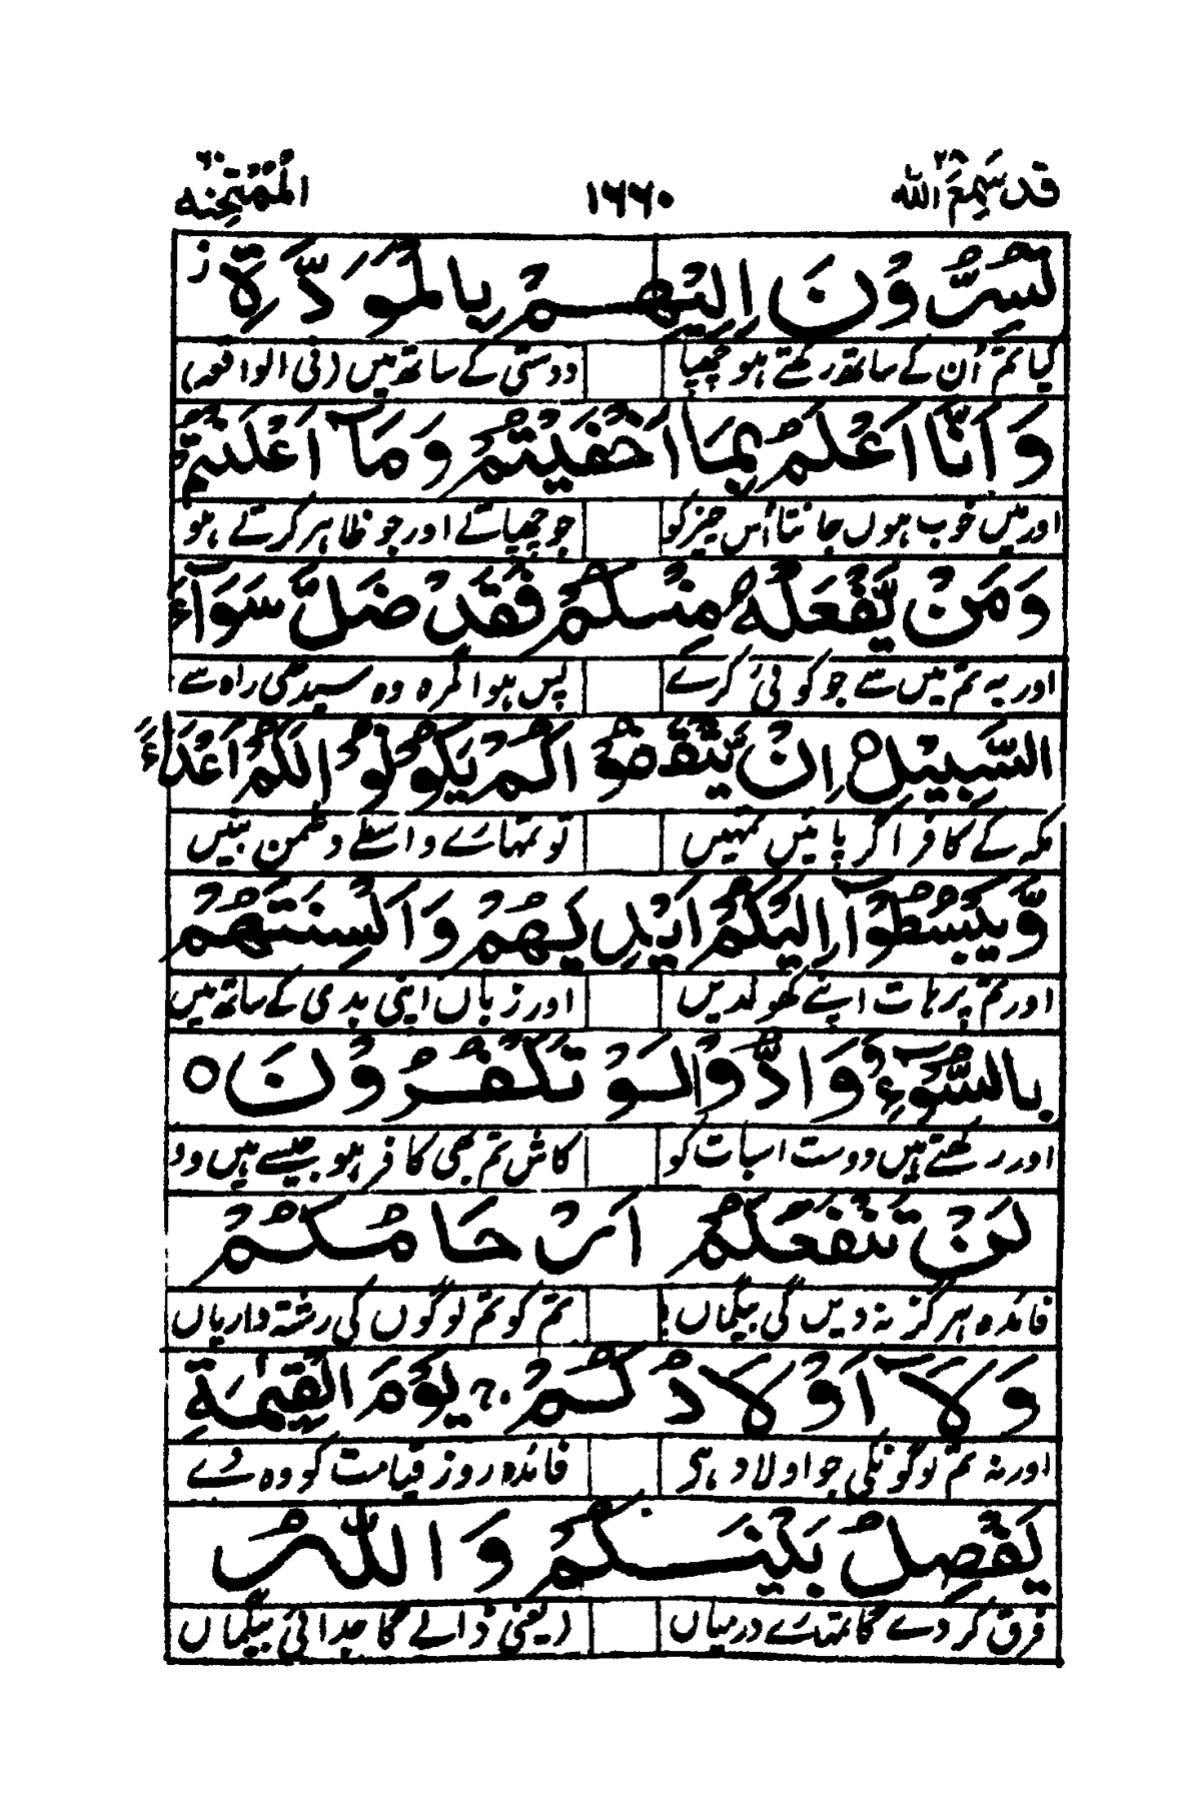 قد سمع الله ٢٨ ١٦٦٠ الممتحنه ٦٠
تُسِرُّوۡنَ اِلَيۡهِمۡ بِالۡمَوَدَّةِ ۖز
کیا تم اُن کے ساتھ رکھتے ہو چھپا دوستی کے ساتھ میں (فی الواقعہ)
وَ اَنَا اَعۡلَمُ بِمَاۤ اَخۡفَيۡتُمۡ وَ مَاۤ اَعۡلَنۡتُمۡ
اور میں خوب ہوں جانتا اُس چیز کو جو چھپاتے اور جو ظاہر کرتے ہو
وَ مَنۡ يَّفۡعَلۡهُ مِنۡكُمۡ فَقَدۡ ضَلَّ سَوَآءَ
اور یہ تم میں سے جو کوئی کرے پس ہوا گمراہ وہ سیدھی راہ سے
السَّبِيۡلِ ۝ اِنۡ يَّثۡقَفُوۡكُمۡ يَكُوۡنُوۡا لَكُمۡ اَعۡدَآءً
مکہ کے کافر اگر پائیں تمہیں تو تمہارے واسطے دشمن بنیں
وَّ يَبۡسُطُوۡۤا اِلَيۡكُمۡ اَيۡدِيَهُمۡ وَ اَلۡسِنَتَهُمۡ
اور تم پر ہات اپنے کھولدیں اور زباں اپنی بدی کے ساتھ میں
بِالسُّوۡٓءِ وَ وَدُّوۡا لَوۡ تَكۡفُرُوۡنَ ۝
اور رکھتے ہیں دوست اسبات کو کاش تم بھی کافر ہو جیسے ہیں وہ
لَنۡ تَنۡفَعَكُمۡ اَرۡحَامُكُمۡ
فائدہ ہرگز نہ دیں گی بیگماں تم کو تم لوگوں کی رشتہ داریاں
وَ لَاۤ اَوۡلَادُكُمۡ ۛۚ يَوۡمَ الۡقِيٰمَةِ
اور نہ تم لوگونکی جو اولاد ہی فائدہ روز قیامت کو وہ دے
يَفۡصِلُ بَيۡنَكُمۡ وَ اللّٰهُ
فرق کر دے گا تمہارے درمیاں (یعنی ڈالے گا جدائی بیگماں